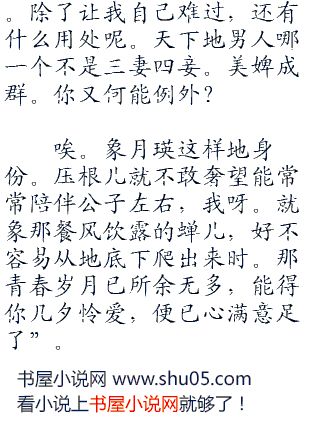 。除了让我自己难过，还有
什么用处呢。天下地男人哪
一个不是三妻四妾。美婢成
群。你又何能例外？
唉。象月瑛这样地身
份。压根儿就不敢奢望能常
常陪伴公子左右，我呀。就
象那餐风饮露的蝉儿，好不
容易从地底下爬出来时。那
青春岁月已所余无多，能得
你几夕怜爱，便已心满意足
了”。
书屋小说网 www.shu05.com
看小说上书屋小说网就够了！